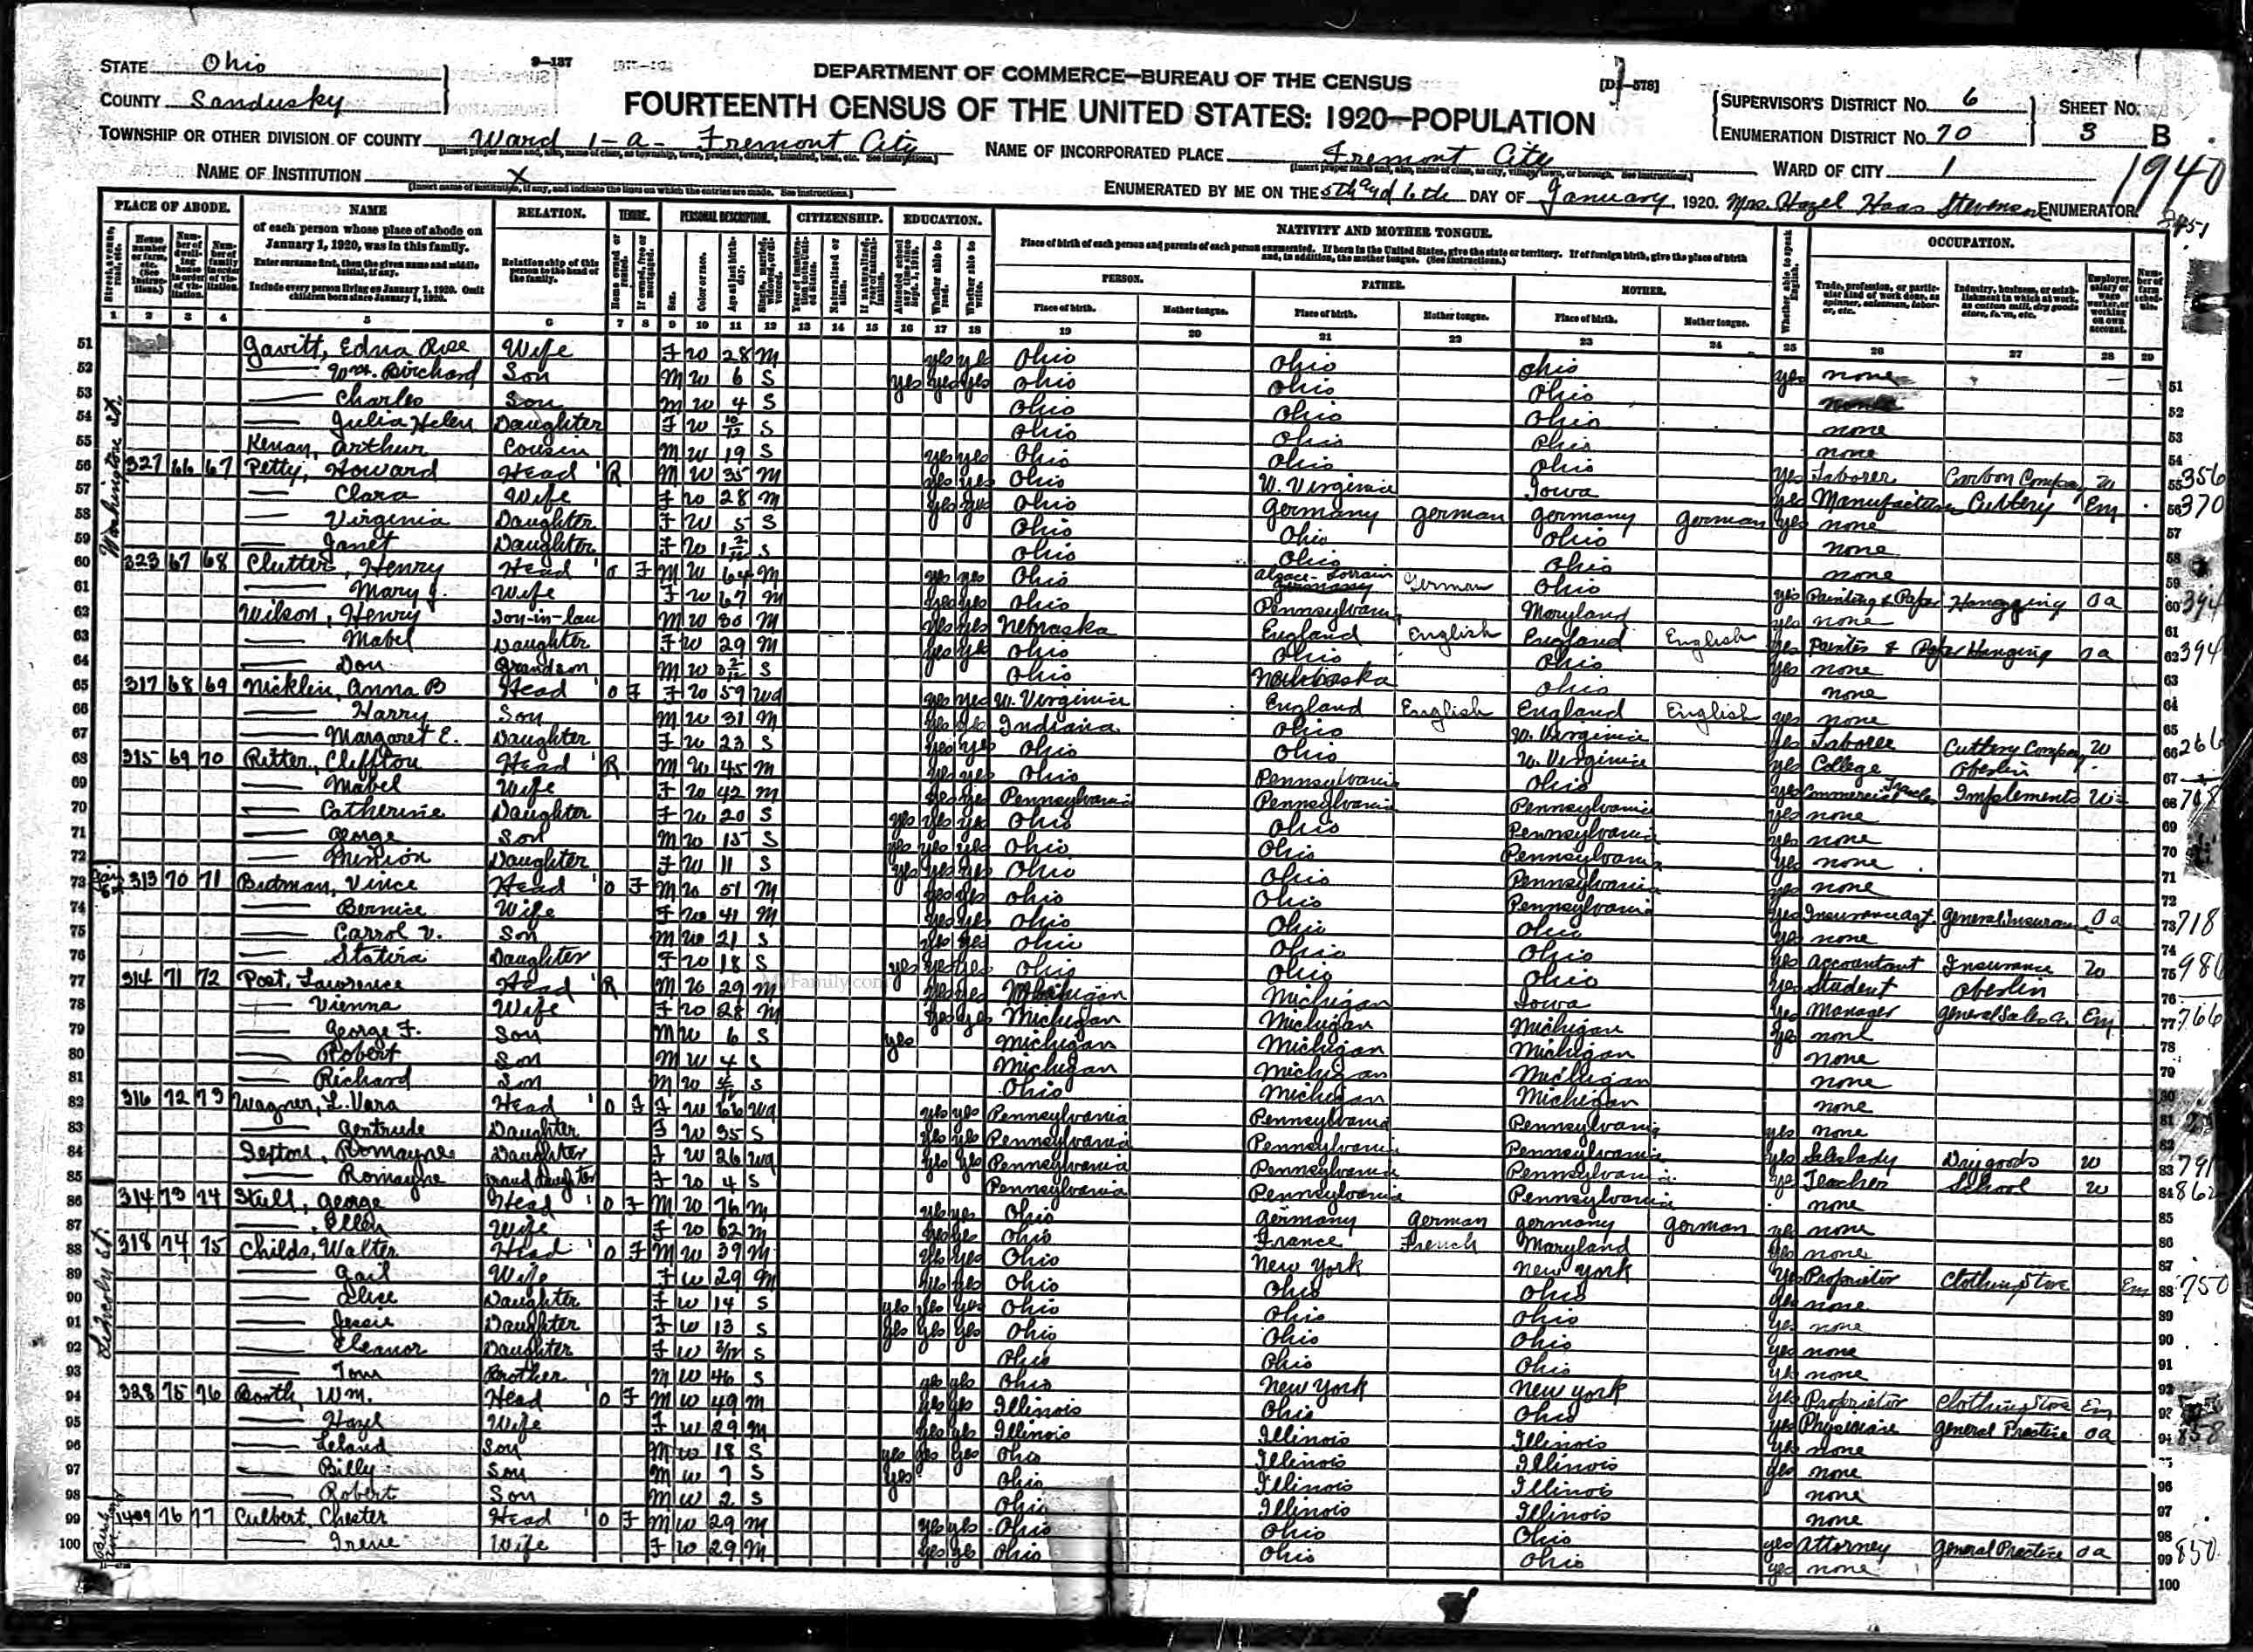 STATE Ohio 9-137
DEPARTMENT OF COMMERCE—BUREAU OF THE CENSUS [D1-578]
COUNTY Sandusky
FOURTEENTH CENSUS OF THE UNITED STATES: 1920—POPULATION
SUPERVISOR'S DISTRICT NO. 6 SHEET NO.
ENUMERATION DISTRICT NO. 70 3 B
TOWNSHIP OR OTHER DIVISION OF COUNTY Ward 1-a- Fremont City NAME OF INCORPORATED PLACE Fremont City WARD OF CITY 1
1940
NAME OF INSTITUTION X
ENUMERATED BY ME ON THE 5th and 6th DAY OF January, 1920. Mrs. Hazel Haas Stevenson ENUMERATOR
PLACE OF ABODE. NAME RELATION. TENURE. PERSONAL DESCRIPTION. CITIZENSHIP. EDUCATION. NATIVITY AND MOTHER TONGUE. OCCUPATION.
of each person whose place of abode on January 1, 1920, was in this family.
Enter surname first, then the given name and middle initial, if any.
Include every person living on January 1, 1920. Omit children born since January 1, 1920.
Relationship of this person to the head of the family.
PERSON. FATHER. MOTHER.
Place of birth. Mother tongue. Place of birth. Mother tongue. Place of birth. Mother tongue.
1 2 3 4 5 6 7 8 9 10 11 12 13 14 15 16 17 18 19 20 21 22 23 24 25 26 27 28 29
51 Gavitt, Edna Rose Wife F W 28 M yes yes Ohio Ohio Ohio yes none
52 — Wm. Birchard Son M W 6 S yes yes yes Ohio Ohio Ohio none
53 — Charles Son M W 4 S Ohio Ohio Ohio none
54 — Julia Helen Daughter F W 10/12 S Ohio Ohio Ohio none
55 Kenan, Arthur Cousin M W 19 S yes yes Ohio Ohio Ohio yes Laborer Carbon Company W 356
56 327 66 67 Petty, Howard Head R M W 35 M yes yes Ohio W. Virginia Iowa yes Manufacturer Cutlery Em 370
57 — Clara Wife F W 28 M yes yes Ohio Germany German Germany German yes none
58 — Virginia Daughter F W 5 S Ohio Ohio Ohio none
59 — Janet Daughter F W 1 2/12 S Ohio Ohio Ohio none
60 323 67 68 Clutter, Henry Head O F M W 64 M yes yes Ohio Alsace-Lorrain German Ohio yes Painting & Paper Hanging Oa 394
61 — Mary J. Wife F W 67 M yes yes Ohio Pennsylvania Maryland yes none
62 Wilson, Henry Son-in-law M W 30 M yes yes Nebraska England English England English yes Painter & Paper Hanging Oa 394
63 — Mabel Daughter F W 29 M yes yes Ohio Ohio Ohio yes none
64 — Don Grandson M W 0 2/12 S Ohio Nebraska Ohio none
65 317 68 69 Nicklin, Anna B Head O F F W 59 Wd yes yes W. Virginia England English England English yes none
66 — Harry Son M W 31 M yes yes Indiana Ohio W. Virginia yes Laborer Cutlery Company W 266
67 — Margaret E. Daughter F W 23 S yes yes Ohio Ohio W. Virginia yes College Oberlin
68 315 69 70 Ritter, Cliffton Head R M W 45 M yes yes Ohio Pennsylvania Ohio yes Commercial Traveler Implements W
69 — Mabel Wife F W 42 M yes yes Pennsylvania Pennsylvania Pennsylvania yes none
70 — Catherine Daughter F W 20 S yes yes yes Ohio Ohio Pennsylvania yes none
71 — George Son M W 15 S yes yes yes Ohio Ohio Pennsylvania yes none
72 — Minion Daughter F W 11 S yes yes yes Ohio Ohio Pennsylvania yes none
73 313 70 71 Bidman, Vince Head O F M W 51 M yes yes Ohio Ohio Pennsylvania yes Insurance Agt. General Insurance Oa 718
74 — Bernice Wife F W 41 M yes yes Ohio Ohio Ohio yes none
75 — Carrol V. Son M W 21 S yes yes Ohio Ohio Ohio yes Accountant Insurance W
76 — Statira Daughter F W 18 S yes yes yes Ohio Ohio Ohio yes Student Oberlin
77 314 71 72 Post, Lawrence Head R M W 29 M yes yes Michigan Michigan Iowa yes Manager General Sales Em 766
78 — Vienna Wife F W 28 M yes yes Michigan Michigan Michigan yes none
79 — George F. Son M W 6 S yes Michigan Michigan Michigan none
80 — Robert Son M W 4 S Michigan Michigan Michigan none
81 — Richard Son M W 4/12 S Ohio Michigan Michigan none
82 316 72 73 Wagner, L. Vara Head O F F W 66 Wd yes yes Pennsylvania Pennsylvania Pennsylvania yes none
83 — Gertrude Daughter F W 35 S yes yes Pennsylvania Pennsylvania Pennsylvania yes Saleslady Dry goods W 791
84 Sexton, Romayne Daughter F W 26 Wd yes yes Pennsylvania Pennsylvania Pennsylvania yes Teacher School W 862
85 — Romayne Granddaughter F W 4 S Pennsylvania Pennsylvania Pennsylvania none
86 314 73 74 Stull, George Head O F M W 76 M yes yes Ohio Germany German Germany German yes none
87 — , Ellen Wife F W 62 M yes yes Ohio France French Maryland yes none
88 318 74 75 Childs, Walter Head O F M W 39 M yes yes Ohio New York New York yes Proprietor Clothing Store Em 750
89 — Gail Wife F W 29 M yes yes Ohio Ohio Ohio yes none
90 — Elise Daughter F W 14 S yes yes yes Ohio Ohio Ohio yes none
91 — Jessie Daughter F W 13 S yes yes yes Ohio Ohio Ohio yes none
92 — Eleanor Daughter F W 3/12 S Ohio Ohio Ohio none
93 — Tom Brother M W 46 S yes yes Ohio New York New York yes Proprietor Clothing Store Em
94 328 75 76 Booth, Wm. Head O F M W 49 M yes yes Illinois Ohio Ohio yes Physician General Practice Oa 858
95 — Hazel Wife F W 29 M yes yes Illinois Illinois Illinois yes none
96 — Leland Son M W 18 S yes yes yes Ohio Illinois Illinois yes none
97 — Billy Son M W 7 S yes Ohio Illinois Illinois none
98 — Robert Son M W 2 S Ohio Illinois Illinois none
99 1409 76 77 Culbert, Chester Head O F M W 29 M yes yes Ohio Ohio Ohio yes Attorney General Practice Oa 850
100 — Irene Wife F W 29 M yes yes Ohio Ohio Ohio yes none
Washington St.
MyFamily.com